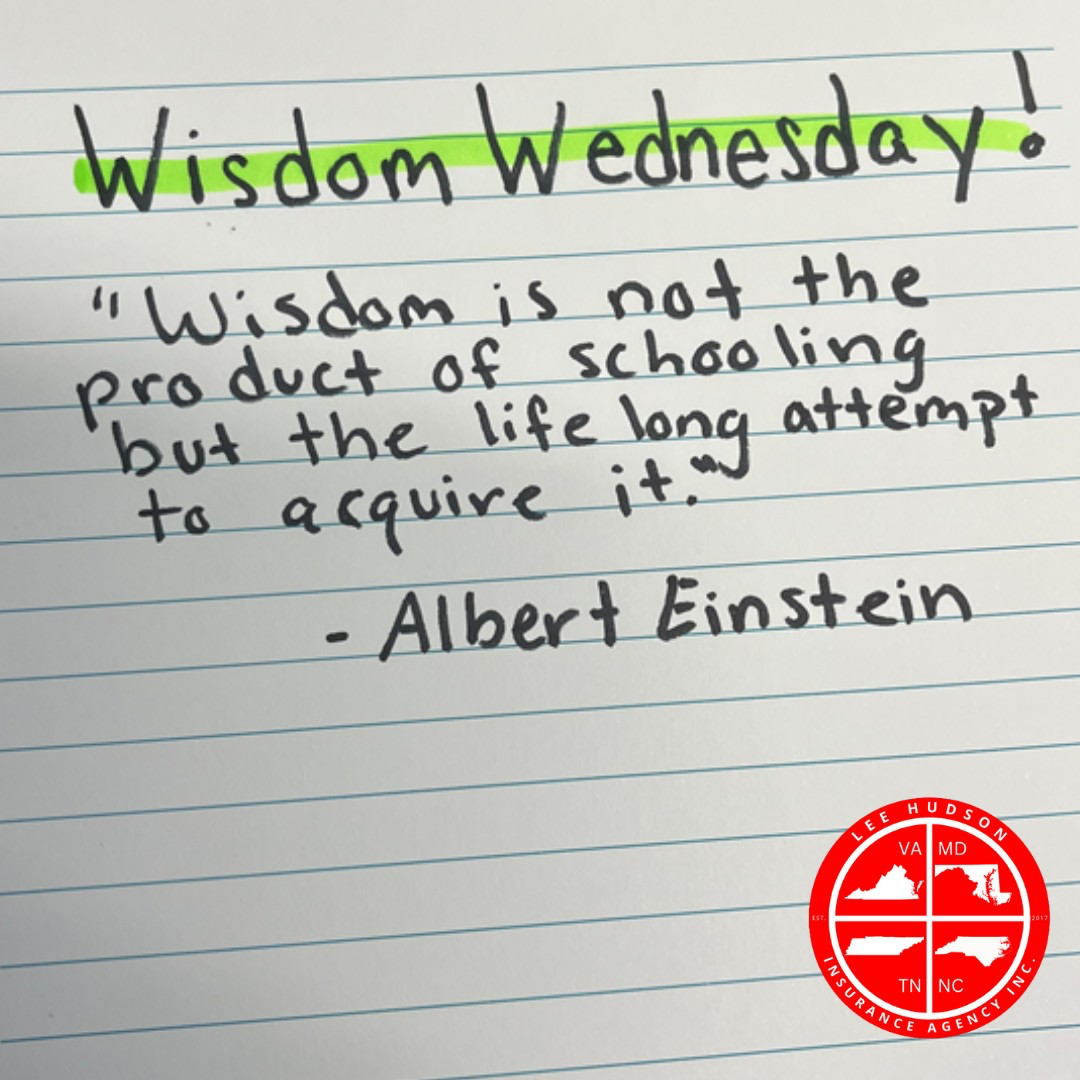 Wisdom Wednesday!
"Wisdom is not the
product of schooling
but the life long attempt
to acquire it."
- Albert Einstein
LEE HUDSON
VA MD
EST. 2017
TN NC
INSURANCE AGENCY INC.